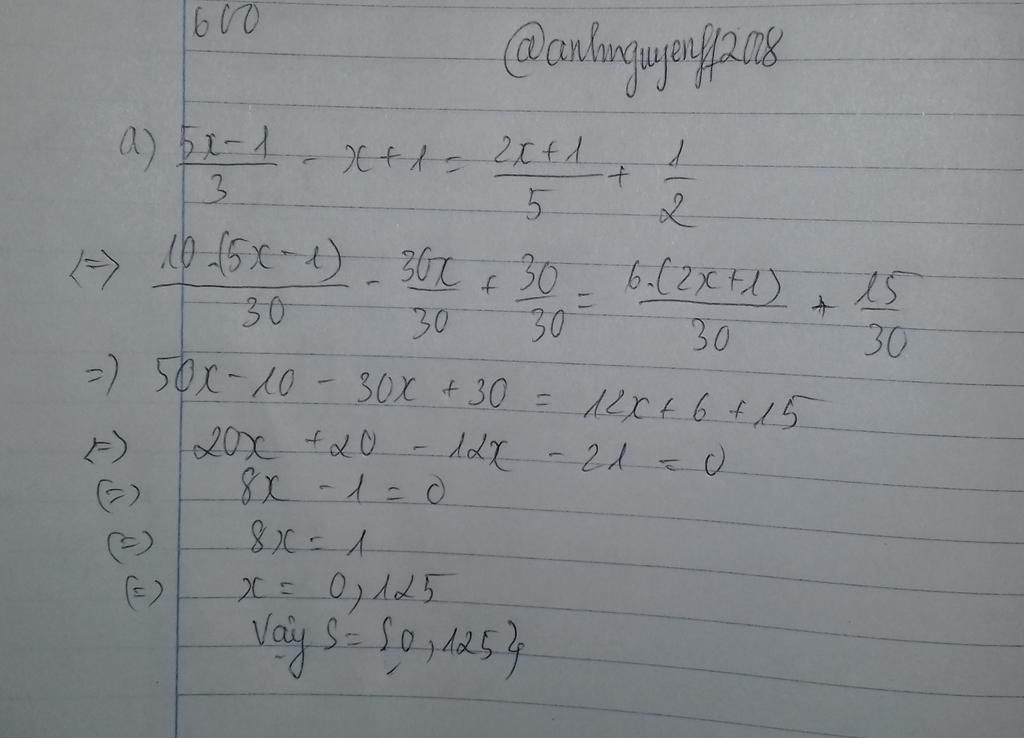 600
@anhnguyenff2008
a) 5x-1/3 - x+1 = 2x+1/5 + 1/2
<=> 10.(5x-1)/30 - 30x/30 + 30/30 = 6.(2x+1)/30 + 15/30
=) 50x-10 - 30x+30 = 12x+6+15
<=) 20x +20 - 12x - 21 = 0
(=) 8x - 1 = 0
(=) 8x = 1
(=) x = 0,125
Vậy S = {0,125}